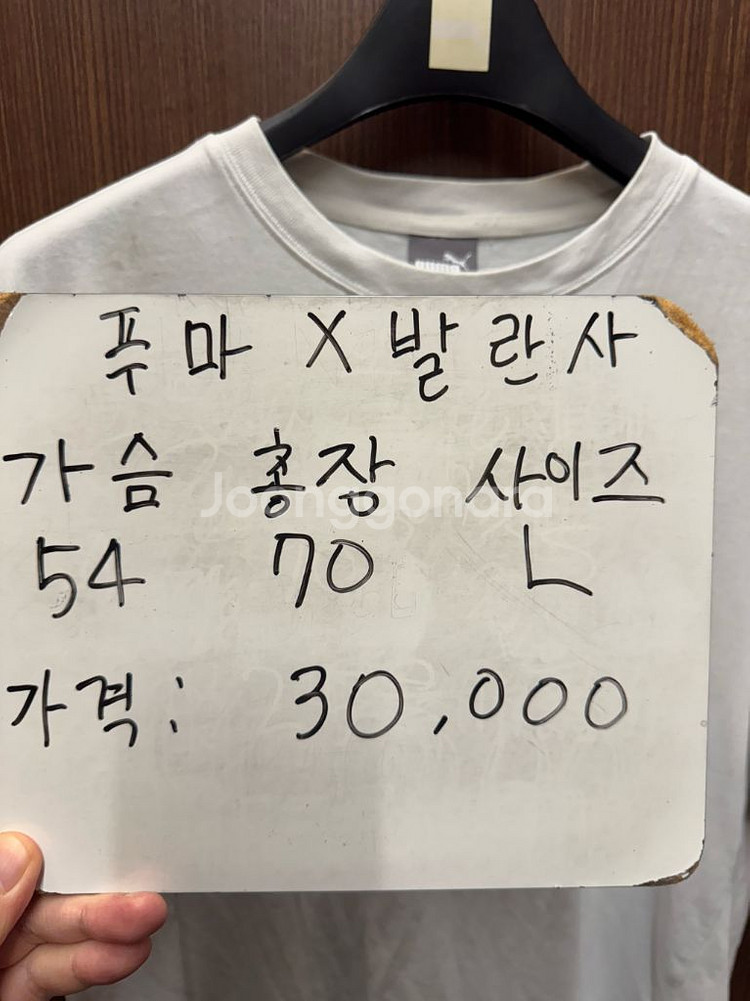 PUMA
푸마 X 발란사
가슴 총장 사이즈
Joonggonara
54 70 L
가격: 30,000